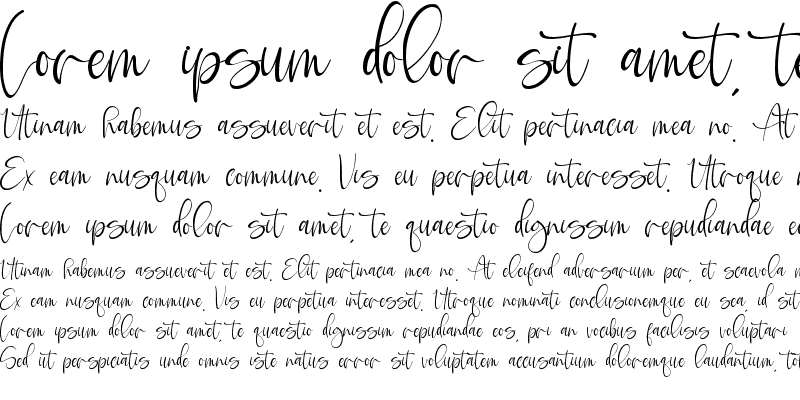 Lorem ipsum dolor sit amet, te
Utinam habemus assueverit et est. Elit pertinacia mea no. At
Ex eam nusquam commune. Vis eu perpetua interesset. Utroque
Lorem ipsum dolor sit amet, te quaestio dignissim repudiandae eo
Utinam habemus assueverit et est. Elit pertinacia mea no. At eleifend adversarium per, et scaevola m
Ex eam nusquam commune. Vis eu perpetua interesset. Utroque nominati conclusionemque eu sea, id sit
Lorem ipsum dolor sit amet, te quaestio dignissim repudiandae eos, pri an vocibus facilisis voluptari
Sed ut perspiciatis unde omnis iste natus error sit voluptatem accusantium doloremque laudantium, tot